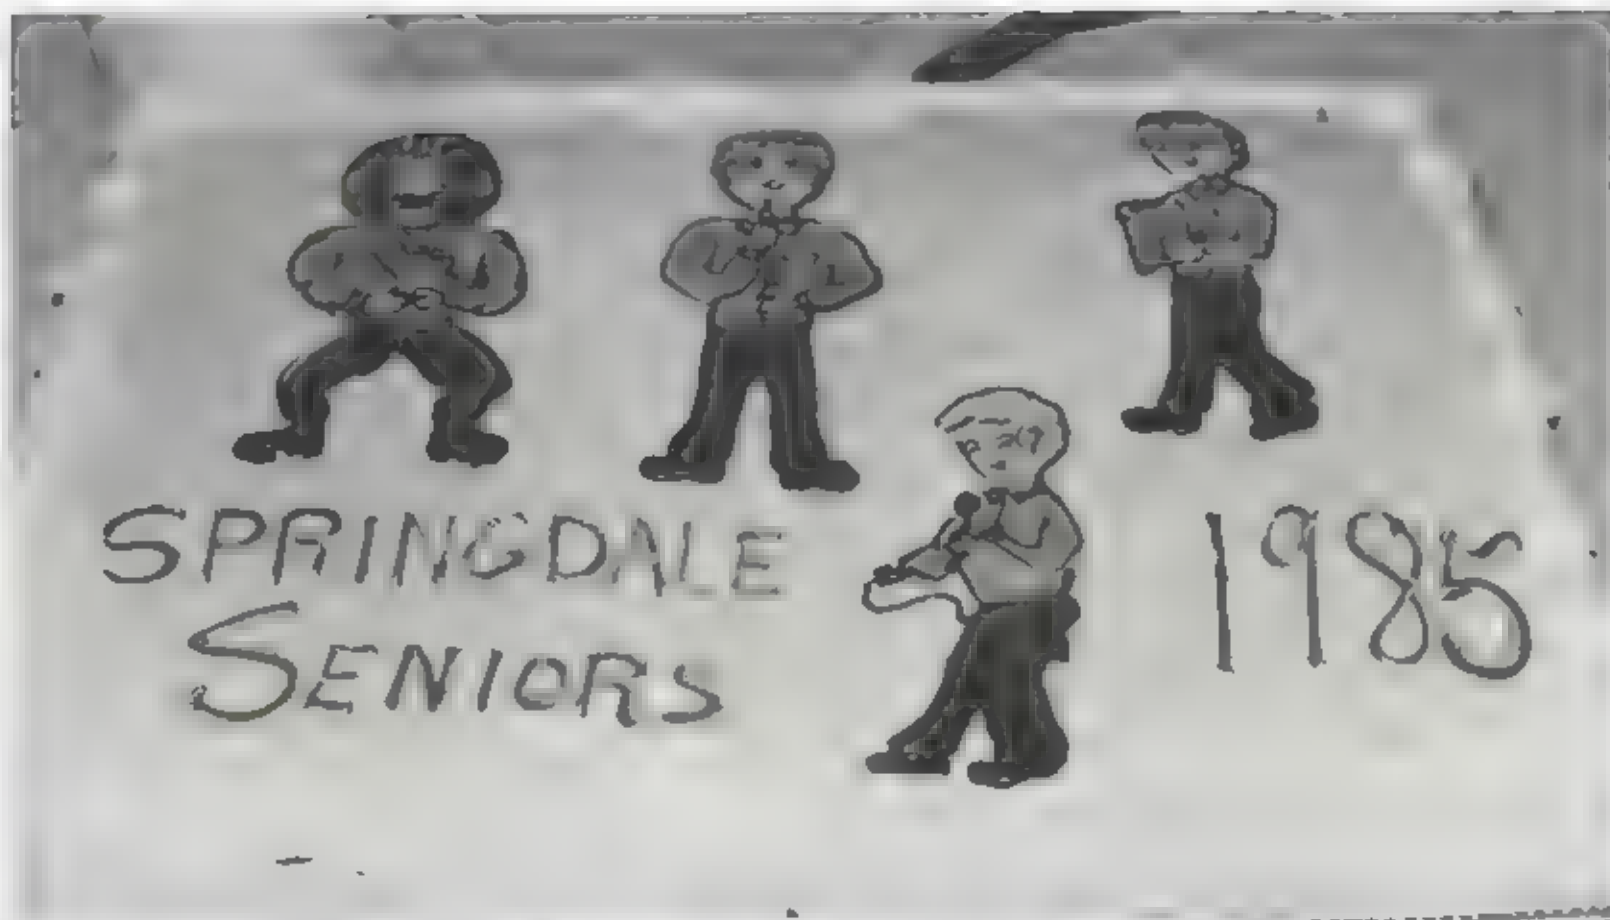 SPRINGDALE
SENIORS
1985